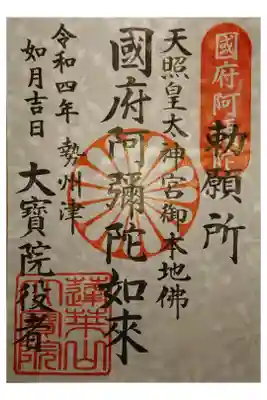 勅願所
天照皇太神宮御本地佛
國府阿彌陀如來
勢州津
大寶院役者
令和四年
如月吉日
國府阿
蓮華山